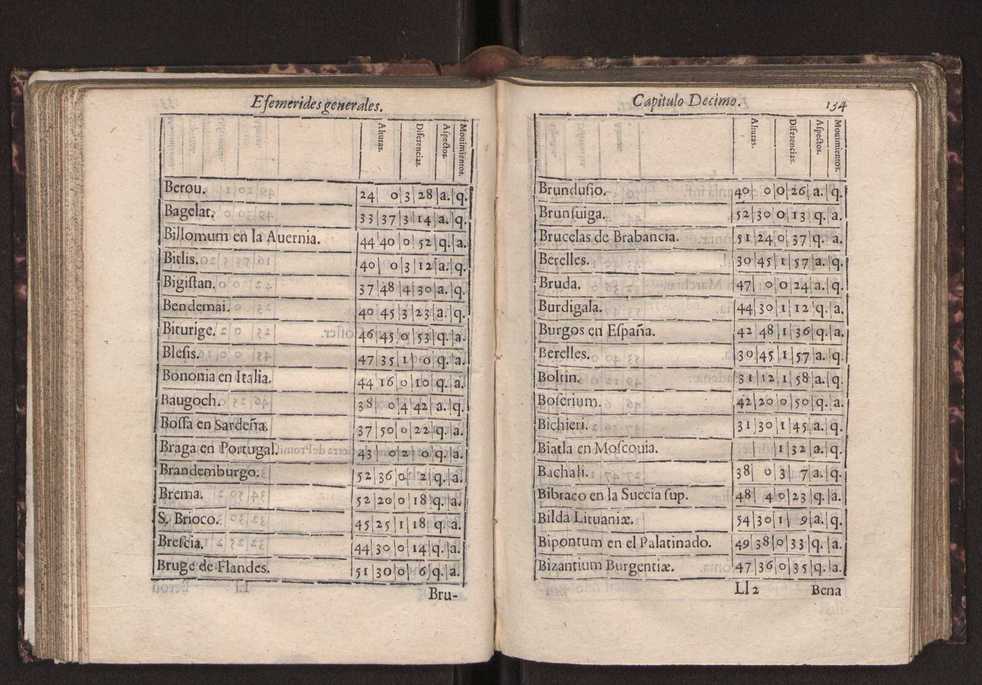 Efemerides generales.
Alturas. Diferencias. Aspectos. Mouimientos.
Berou. 24 0 3 28 a. q.
Bagelat. 33 37 3 14 a. q.
Billomum en la Auernia. 44 40 0 52 q. a.
Bitlis. 40 0 3 12 a. q.
Bigistan. 37 48 4 30 a. q.
Bendemai. 40 45 3 23 a. q.
Biturige. 46 45 0 53 q. a.
Blesis. 47 35 1 0 q. a.
Bononia en Italia. 44 16 0 10 q. a.
Baugoch. 38 0 4 42 a. q.
Bossa en Sardeña. 37 50 0 22 q. a.
Braga en Portugal. 43 0 2 0 q. a.
Brandemburgo. 52 36 0 2 q. a.
Brema. 52 20 0 18 q. a.
S. Brioco. 45 25 1 18 q. a.
Brescia. 44 30 0 14 q. a.
Bruge de Flandes. 51 30 0 6 q. a.
Bru-
Capitulo Decimo. 154
Alturas. Diferencias. Aspectos. Mouimientos.
Brundusio. 40 0 0 26 a. q.
Brunsuiga. 52 30 0 13 q. a.
Brucelas de Brabancia. 51 24 0 37 q. a.
Berelles. 30 45 1 57 a. q.
Bruda. 47 0 0 24 a. q.
Burdigala. 44 30 1 12 q. a.
Burgos en España. 42 48 1 36 q. a.
Berelles. 30 45 1 57 a. q.
Boltin. 31 12 1 58 a. q.
Boferium. 42 20 0 50 q. a.
Bichieri. 31 30 1 45 a. q.
Biatla en Moscouia. 1 32 a. q.
Bachali. 38 0 3 7 a. q.
Bibraco en la Succia sup. 48 4 0 23 q. a.
Bilda Lituaniæ. 54 30 1 9 a. q.
Bipontum en el Palatinado. 49 38 0 33 q. a.
Bizantium Burgentiæ. 47 36 0 35 q. a.
Ll 2 Bena